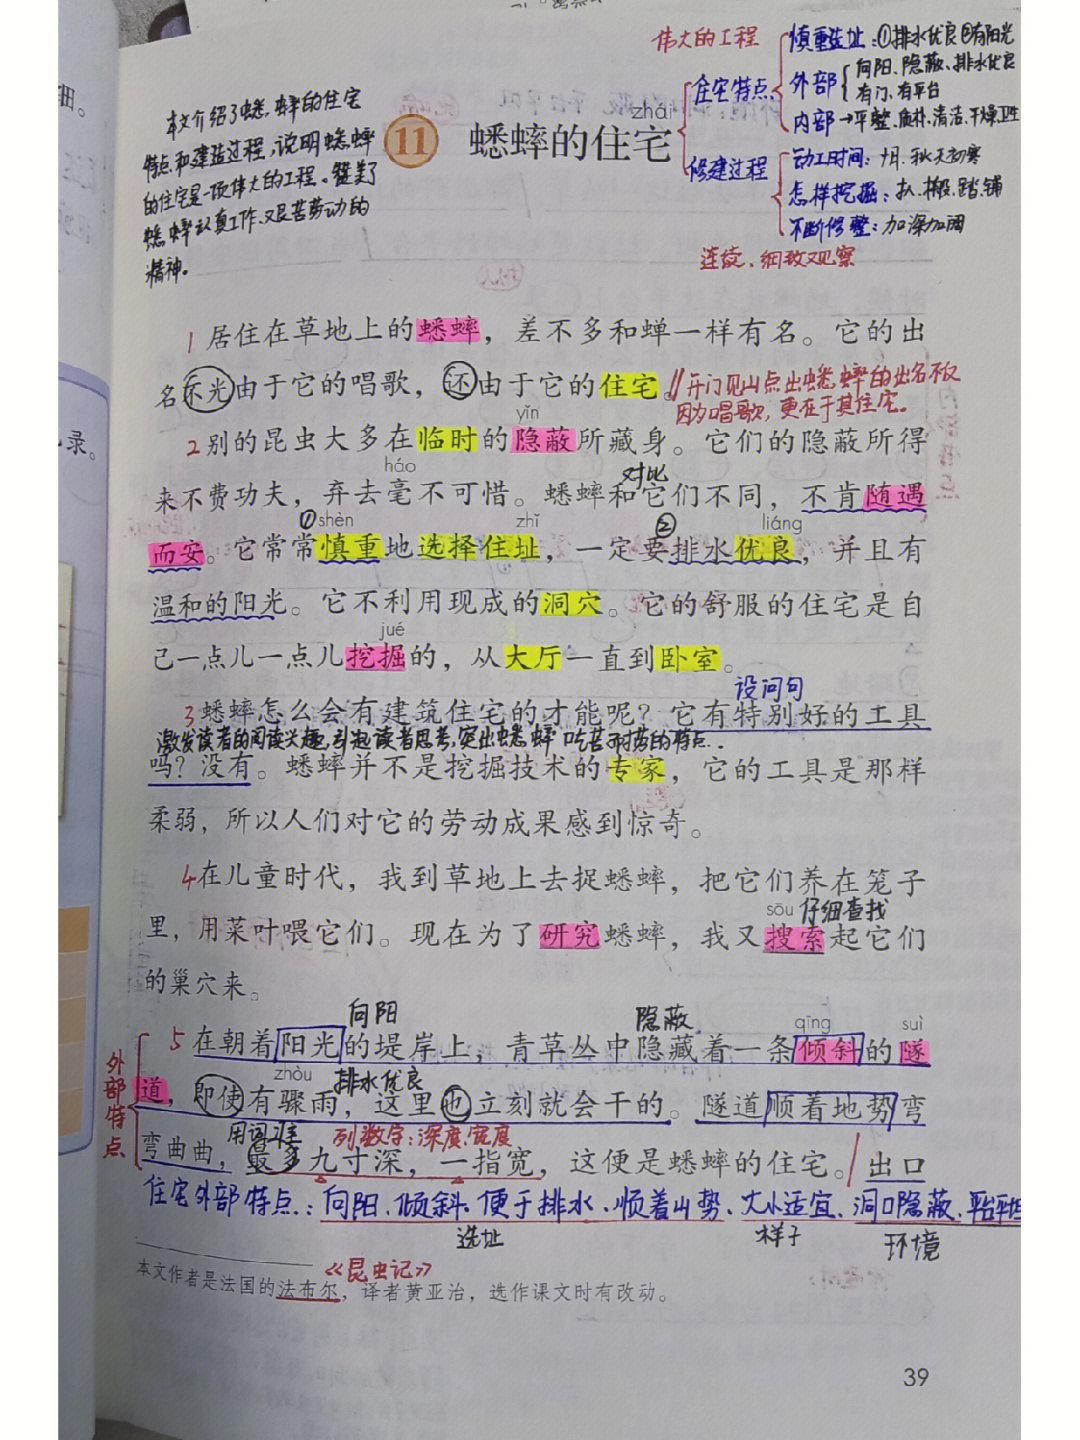 伟大的工程
慎重选址:①排水优良②有阳光
住宅特点
外部
向阳、隐蔽、排水优良
有门、有平台
内部→平整、质朴、清洁、干燥、卫生
修建过程
动工时间:十月、秋天初寒
怎样挖掘:扒、搬、踏、铺
不断修整:加深加阔
连续、细致观察
本文介绍了蟋蟀的住宅
特点和建造过程,说明蟋蟀
的住宅是一项伟大的工程。赞美了
蟋蟀认真工作、艰苦劳动的
精神。
zhái
11 蟋蟀的住宅
1 居住在草地上的蟋蟀,差不多和蝉一样有名。它的出
名不光由于它的唱歌,还由于它的住宅。
//开门见山点出蟋蟀的出名不仅
因为唱歌,更在于其住宅。
yǐn
2 别的昆虫大多在临时的隐蔽所藏身。它们的隐蔽所得
háo
对比
来不费功夫,弃去毫不可惜。蟋蟀和它们不同,不肯随遇
① shèn zhǐ ② liáng
而安。它常常慎重地选择住址,一定要排水优良,并且有
温和的阳光。它不利用现成的洞穴。它的舒服的住宅是自
jué
己一点儿一点儿挖掘的,从大厅一直到卧室。
设问句
3 蟋蟀怎么会有建筑住宅的才能呢?它有特别好的工具
激发读者的阅读兴趣,引起读者思考,突出蟋蟀吃苦耐劳的特点.
吗?没有。蟋蟀并不是挖掘技术的专家,它的工具是那样
柔弱,所以人们对它的劳动成果感到惊奇。
4 在儿童时代,我到草地上去捉蟋蟀,把它们养在笼子
sōu 仔细查找
里,用菜叶喂它们。现在为了研究蟋蟀,我又搜索起它们
的巢穴来。
向阳 隐蔽 qīng suì
5 在朝着阳光的堤岸上,青草丛中隐藏着一条倾斜的隧
外部特点
zhòu 排水优良
道,即使有骤雨,这里也立刻就会干的。隧道顺着地势弯
用词准 列数字:深度、宽度
弯曲曲,最多九寸深,一指宽,这便是蟋蟀的住宅。/出口
住宅外部特点:向阳、倾斜、便于排水、顺着山势、大小适宜、洞口隐蔽、平台平坦
选址 样子 环境
《昆虫记》
本文作者是法国的法布尔,译者黄亚治,选作课文时有改动。
39